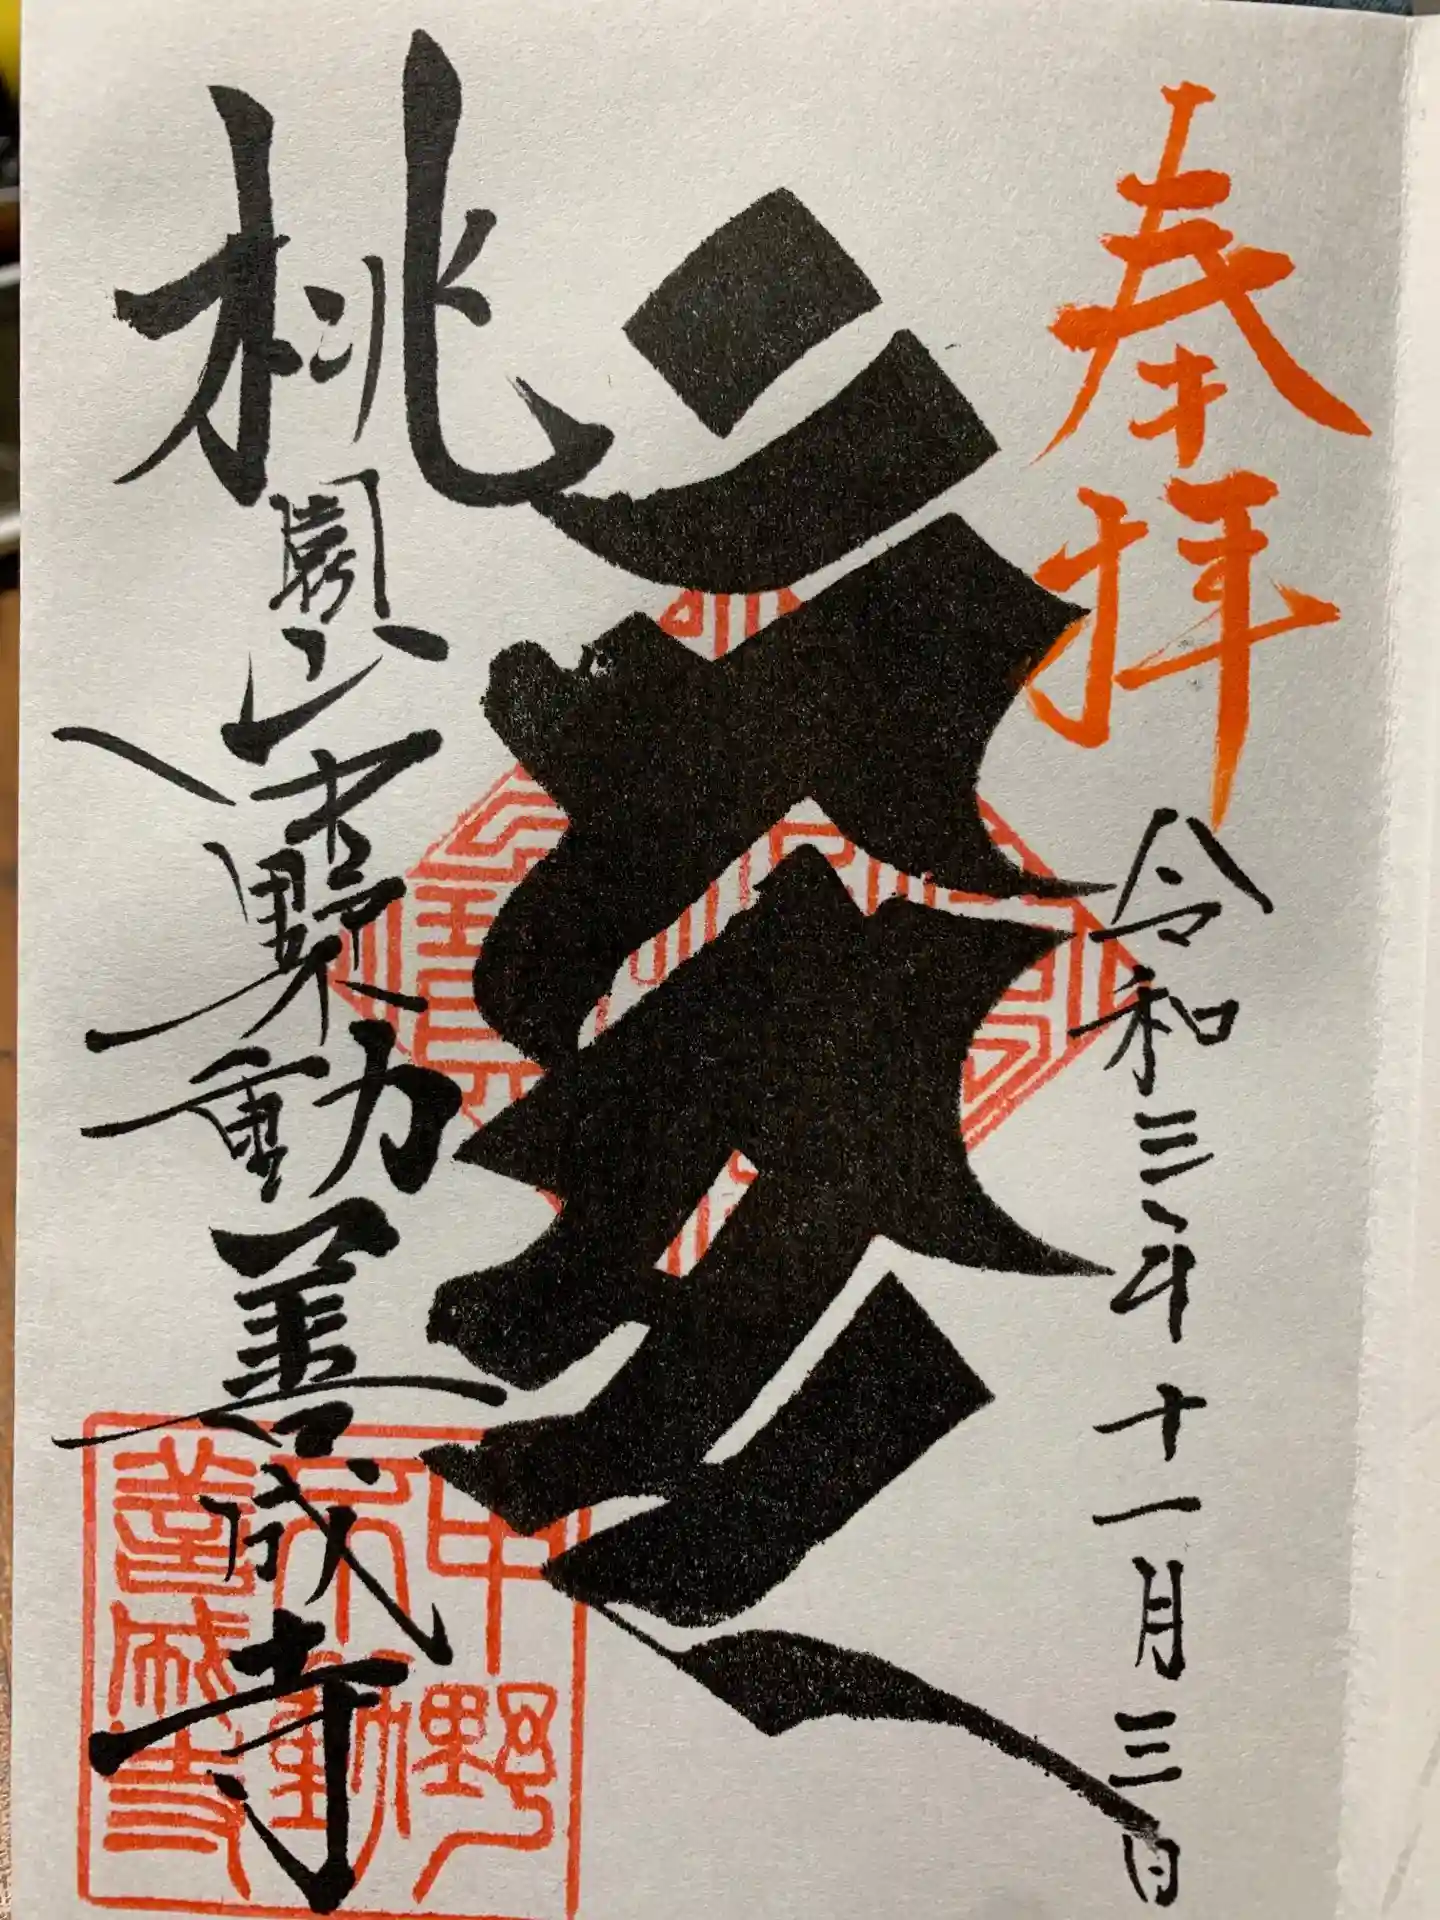 奉拝
令和三年十一月三日
桃園山中野不動善成寺
中野
不動
善成寺